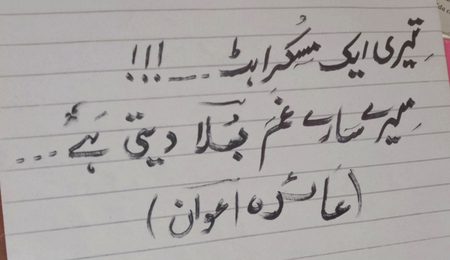 تیری ایک مسکراہٹ ۔۔۔۔!!!
میرے سارے غم بھلا دیتی ہے۔۔۔
(عائزہ اعوان)